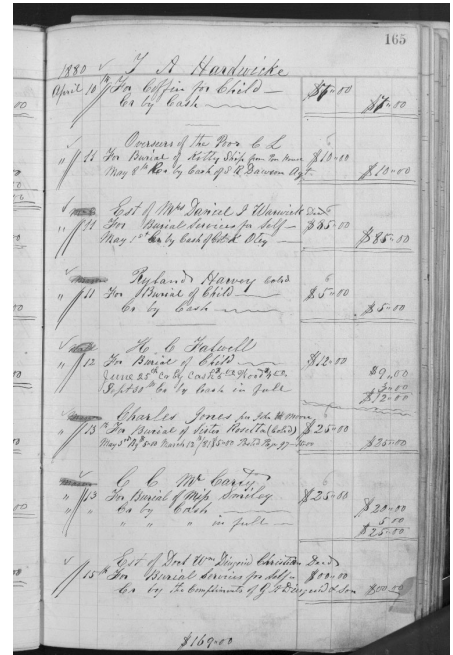 165
1880 ✓ T A Hardwicke
April 10th For Coffin for Child — $7=00
Cr by Cash — $7=00
Overseers of the Poor C L
" 11 For Burial of Kitty Ship from Poor House $10=00
May 8th Cr by Cash of S R Dawson Agt $10=00
✓ Est of Mrs Daniel J Warwick Decd
" 11 For Burial Services for Self — $85=00
May 1st Cr by Cash of Otey — $85=00
✓ Ryland Harvey Cold
" 11 For Burial of Child — $5=00
Cr by Cash — $5=00
✓ H. C. Fatwell
" 12 For Burial of Child — $12=00
June 25th Cr by Cash $9.00
Sept 30th Cr by Cash in full 3=00
$12=00
✓ Charles Jones for John H Moore
" 13th For Burial of Sister Rosetta (Cold) $25=00
May 3rd $25=00
✓ C C McCarty
" 13 For Burial of Miss Smiley $25=00
" " Cr by Cash — $20=00
" " " in full — 5 00
$25=00
✓ Est of Doct Wm Diuguid Christian Decd
" 15th For Burial Services for Self — $00=00
Cr by the Compliments of G A Diuguid & Son $00=00
$169=00